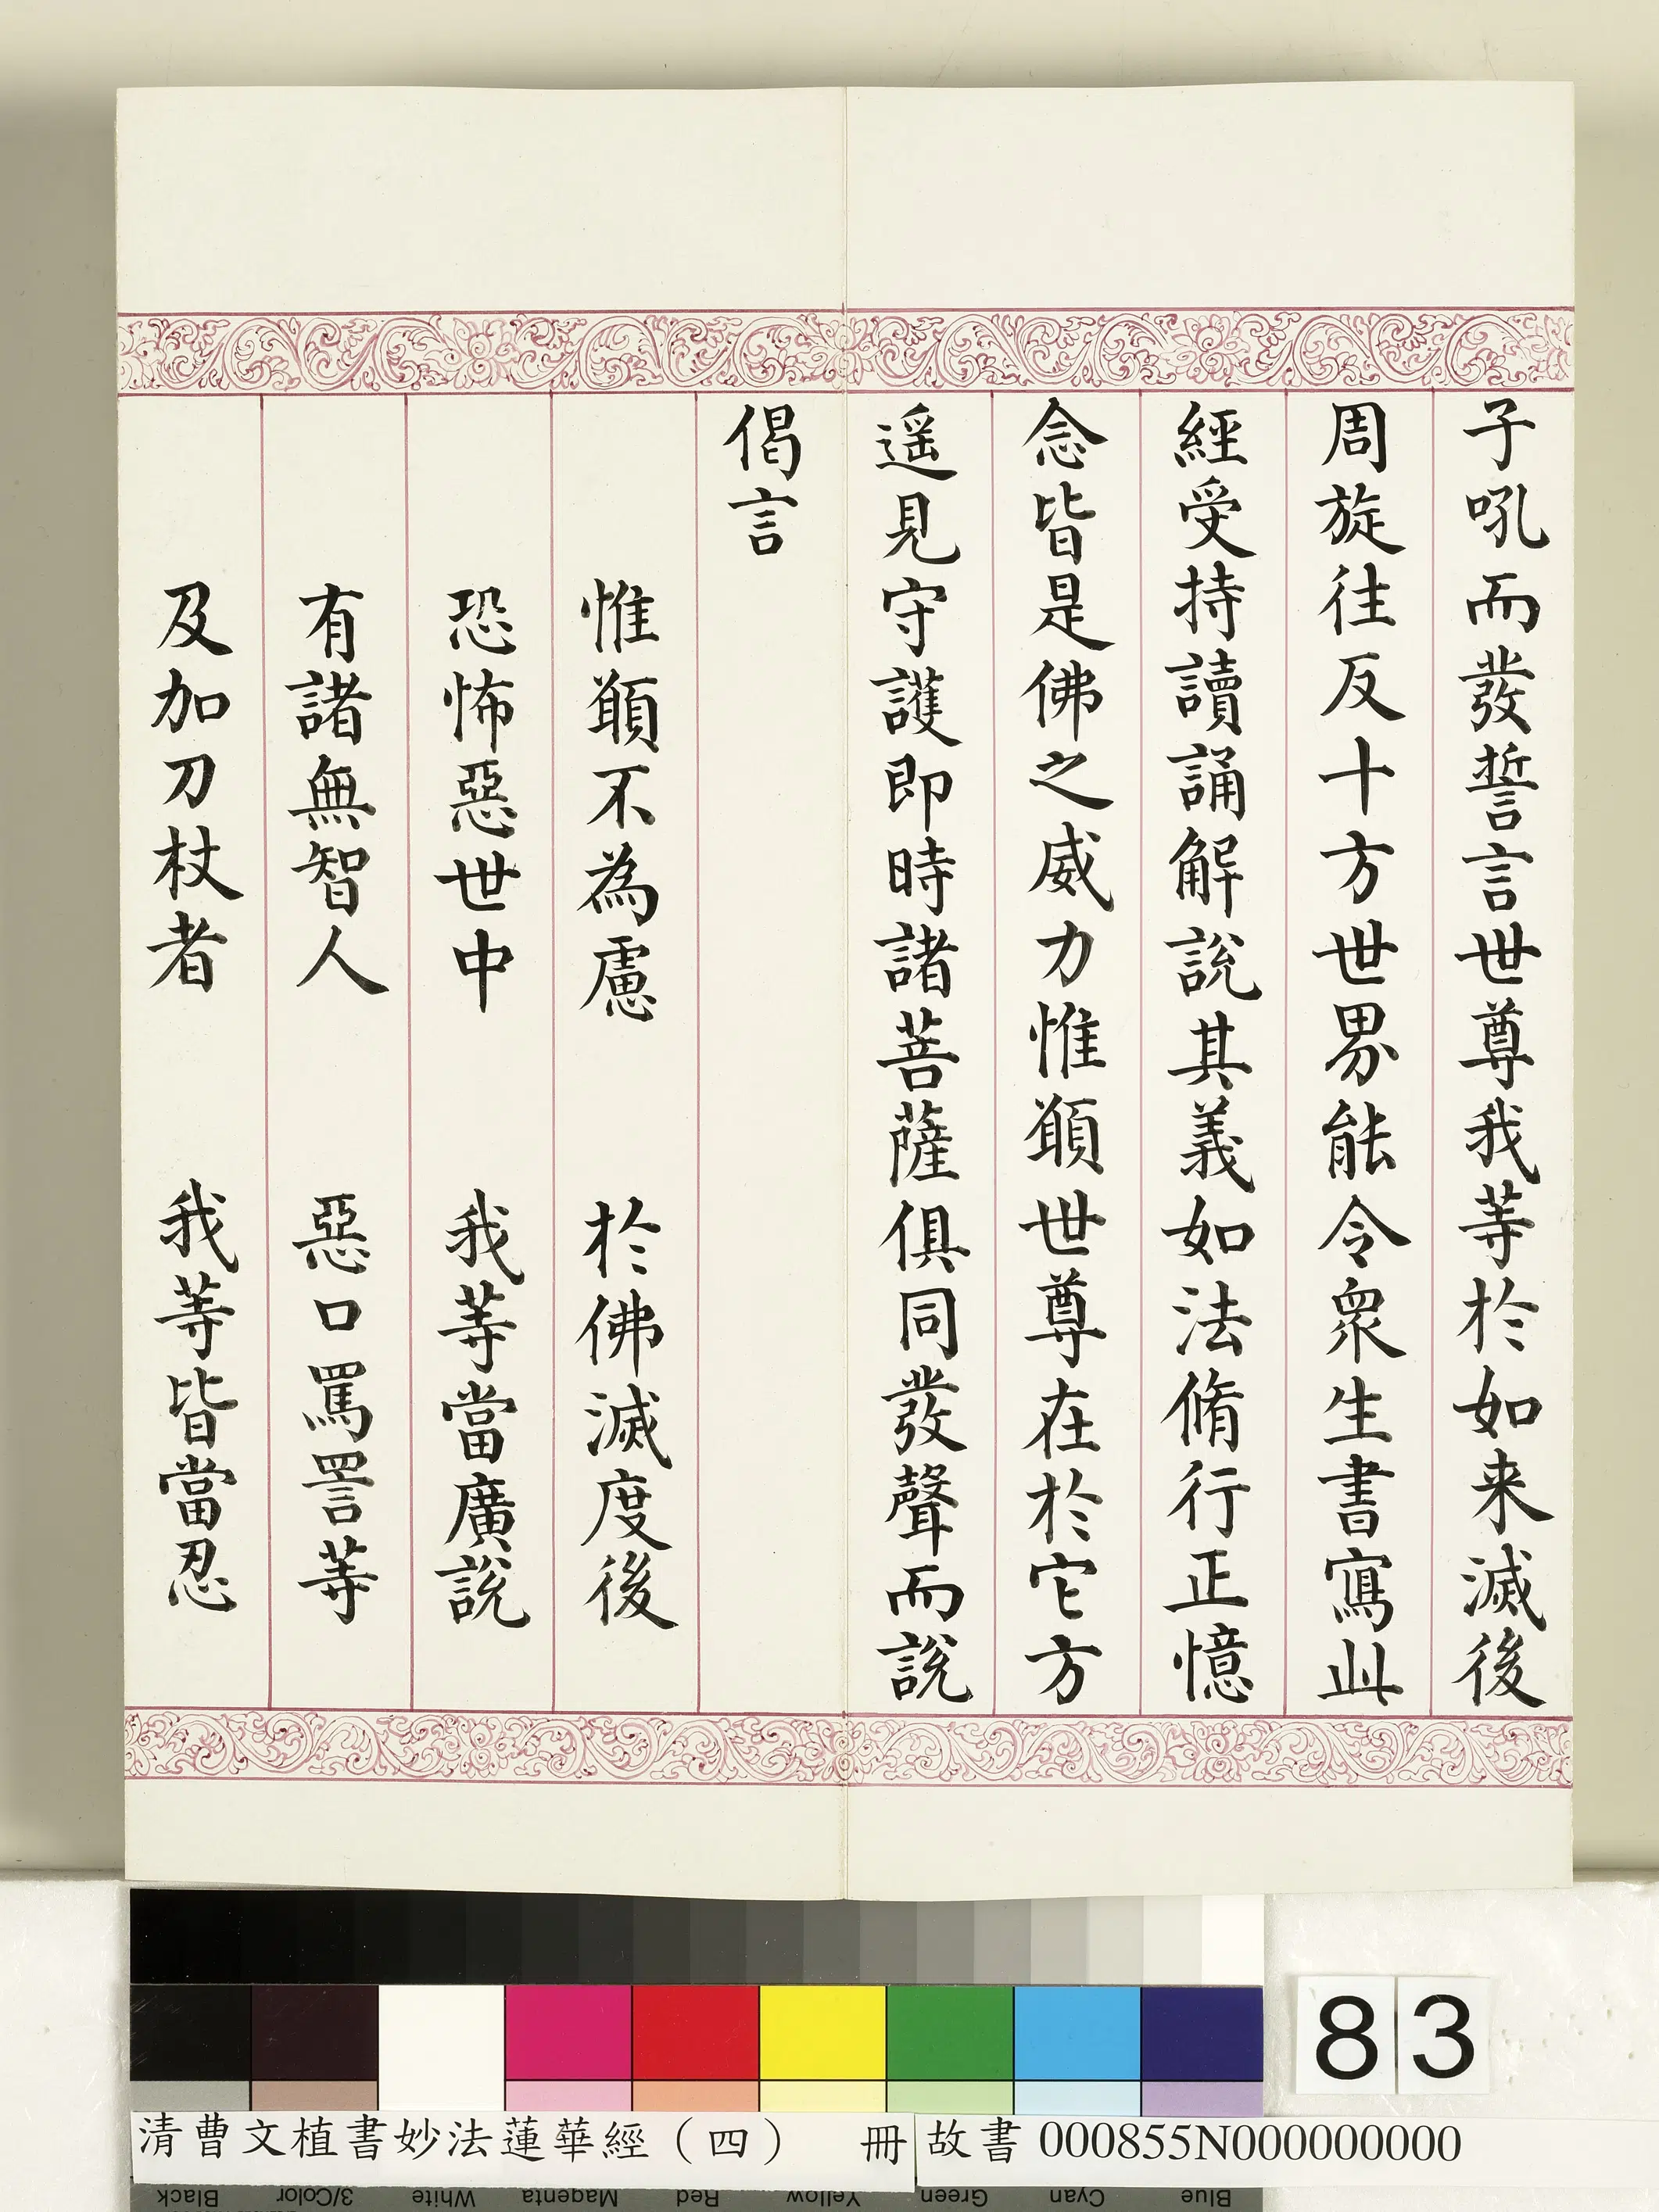 子吼而發誓言世尊我等於如来滅後
周旋往反十方世界能令衆生書寫此
經受持讀誦解說其義如法脩行正憶
念皆是佛之威力惟願世尊在於它方
遥見守護即時諸菩薩俱同發聲而說
偈言
惟願不為慮 於佛滅度後
恐怖惡世中 我等當廣說
有諸無智人 惡口罵詈等
及加刀杖者 我等皆當忍
83
清曹文植書妙法蓮華經（四） 冊
故書 000855N000000000
Black 3/Color White Magenta Red Yellow Green Cyan Blue